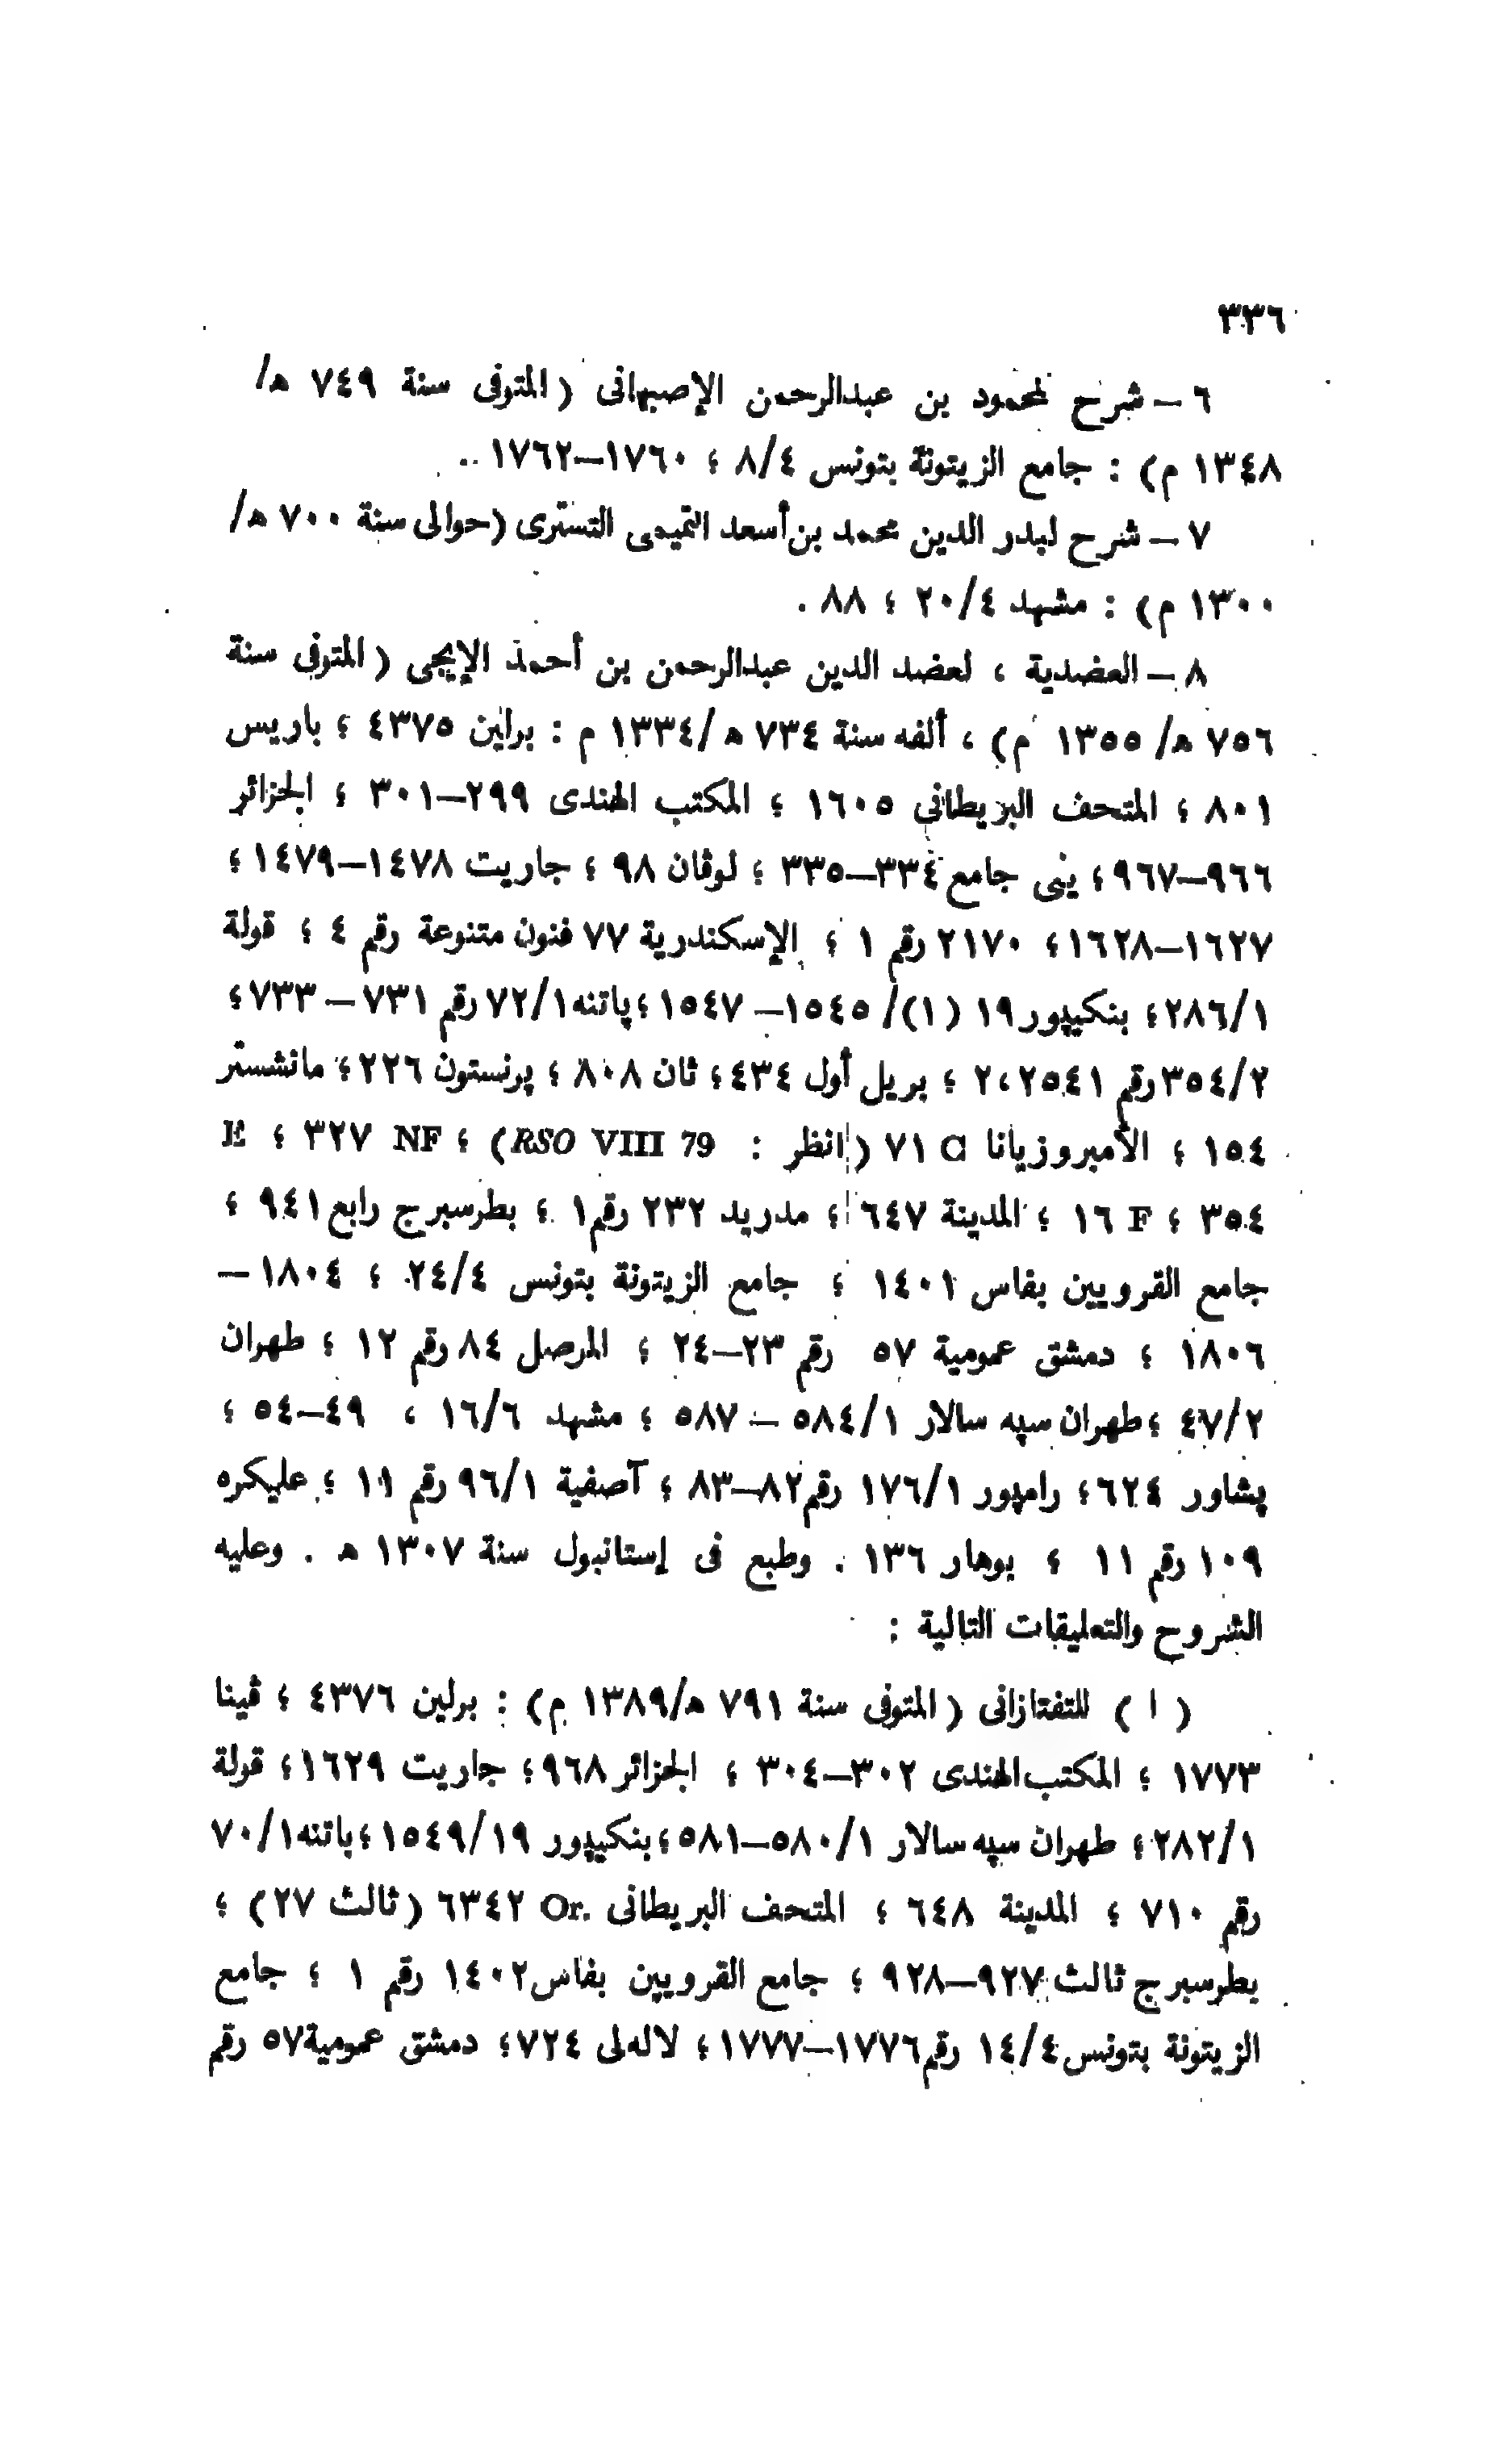 ٣٣٦
٦ – شرح لمحمود بن عبدالرحمن الإصبهانى (المتوفى سنة ٧٤٩ ه/
١٣٤٨ م) : جامع الزيتونة بتونس ٨/٤ ؛ ١٧٦٠–١٧٦٢ .
٧ – شرح لبدر الدين محمد بن أسعد التميمى التسترى (حوالى سنة ٧٠٠ ه/
١٣٠٠ م) : مشهد ٢٠/٤ ؛ ٨٨ .
٨ – العضدية ، لعضد الدين عبدالرحمن بن أحمد الإيجى (المتوفى سنة
٧٥٦ ه/ ١٣٥٥ م) ، ألفه سنة ٧٣٤ ه/١٣٣٤ م : برلين ٤٣٧٥ ؛ باريس
٨٠١ ؛ المتحف البريطانى ١٦٠٥ ؛ المكتب الهندى ٢٩٩–٣٠١ ؛ الجزائر
٩٦٦–٩٦٧ ؛ ينى جامع ٣٣٤–٣٣٥ ؛ لوڤان ٩٨ ؛ جاريت ١٤٧٨–١٤٧٩ ؛
١٦٢٧–١٦٢٨ ؛ ٢١٧٠ رقم ١ ؛ الإسكندرية ٧٧ فنون متنوعة رقم ٤ ؛ قولة
٢٨٦/١ ؛ بنكيپور ١٩ (١)/ ١٥٤٥ – ١٥٤٧ ؛ پاتنه ٧٢/١ رقم ٧٣١ – ٧٣٣ ؛
٣٥٤/٢ رقم ٢،٢٥٤١ ؛ بريل أول ٤٣٤ ؛ ثان ٨٠٨ ؛ پرنستون ٢٢٦ ؛ مانشستر
١٥٤ ؛ الأمبروزيانا C ٧١ (انظر : RSO VIII 79) ؛ NF ٣٢٧ ؛ E
٣٥٤ ؛ F ١٦ ؛ المدينة ٦٤٧ ؛ مدريد ٢٣٢ رقم ١ ؛ بطرسبرج رابع ٩٤١ ؛
جامع القرويين بفاس ١٤٠١ ؛ جامع الزيتونة بتونس ٢٤/٤ ؛ ١٨٠٤ –
١٨٠٦ ؛ دمشق عمومية ٥٧ رقم ٢٣–٢٤ ؛ المرصل ٨٤ رقم ١٢ ؛ طهران
٤٧/٢ ؛ طهران سپه سالار ٥٨٤/١ – ٥٨٧ ؛ مشهد ١٦/٦ ، ٤٩–٥٤ ؛
پشاور ٦٢٤ ؛ رامپور ١٧٦/١ رقم ٨٢–٨٣ ؛ آصفية ٩٦/١ رقم ١١ ؛ عليكره
١٠٩ رقم ١١ ؛ بوهار ١٣٦ . وطبع فى إستانبول سنة ١٣٠٧ ه . وعليه
الشروح والتعليقات التالية :
( ا ) للتفتازانى (المتوفى سنة ٧٩١ ه/١٣٨٩ م) : برلين ٤٣٧٦ ؛ ڤينا
١٧٧٣ ؛ المكتب الهندى ٣٠٢–٣٠٤ ؛ الجزائر ٩٦٨ ؛ جاريت ١٦٢٩ ؛ قولة
٢٨٢/١ ؛ طهران سپه سالار ٥٨٠/١–٥٨١ ؛ بنكيپور ١٥٤٩/١٩ ؛ باتنه ٧٠/١
رقم ٧١٠ ؛ المدينة ٦٤٨ ؛ المتحف البريطانى Or. ٦٣٤٢ (ثالث ٢٧) ؛
بطرسبرج ثالث ٩٢٧–٩٢٨ ؛ جامع القرويين بفاس ١٤٠٢ رقم ١ ؛ جامع
الزيتونة بتونس ١٤/٤ رقم ١٧٧٦–١٧٧٧ ؛ لاله‌لى ٧٢٤ ؛ دمشق عمومية ٥٧ رقم